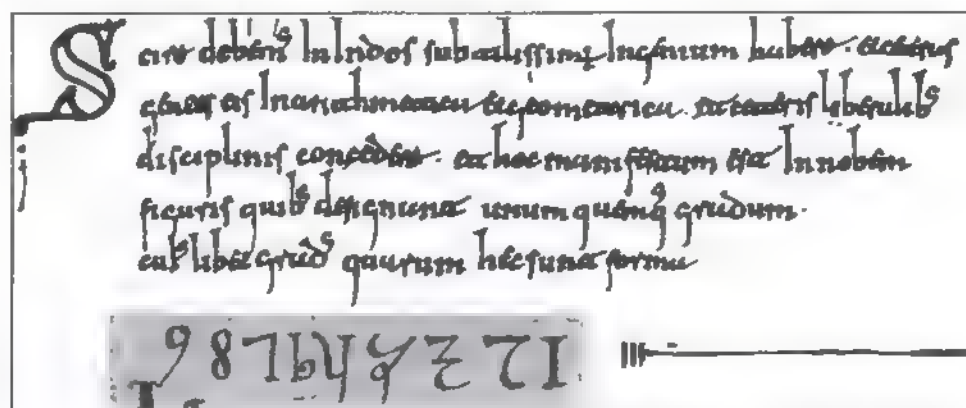 Scire debemꝰ In Indos subtilissime Ingenium habere. et ceteras
gentes eis In arithmetica et geometrica. et ceteris liberalibꝰ
disciplinis concedere. et hoc manifestum est In nobem
figuris quibꝰ designant unum quemqꝰ gradum.
cuiꝰlibet gradꝰ quarum hec sunt forma
9 8 7 6 5 4 3 2 1